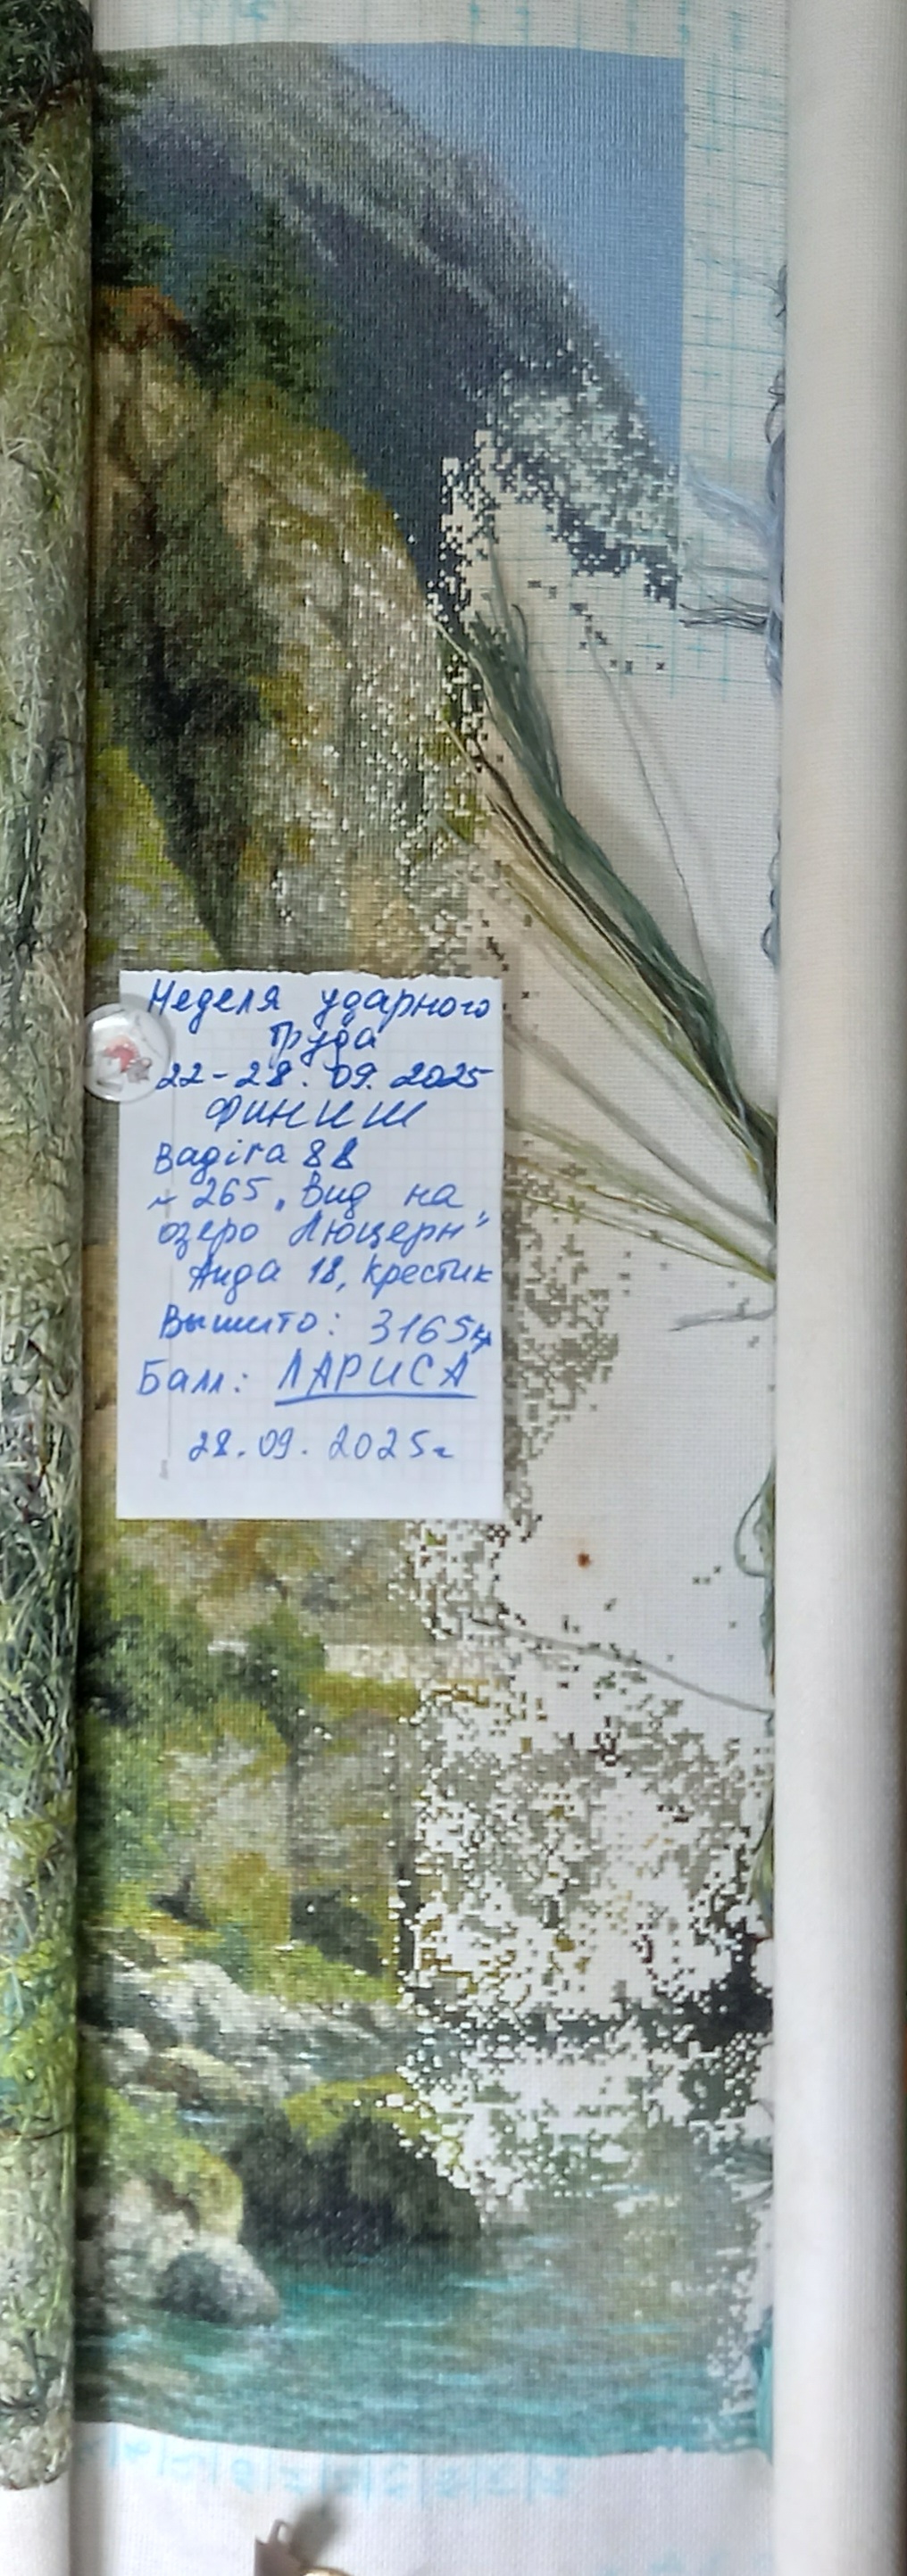 Неделя ударного
труда
22-28.09.2025
ФИНИШ
Bagira 88
265 "Вид на
озеро Люцерн"
Аида 18, крестик
Вышито: 3165кр
Балл: ЛАРИСА
28.09.2025г